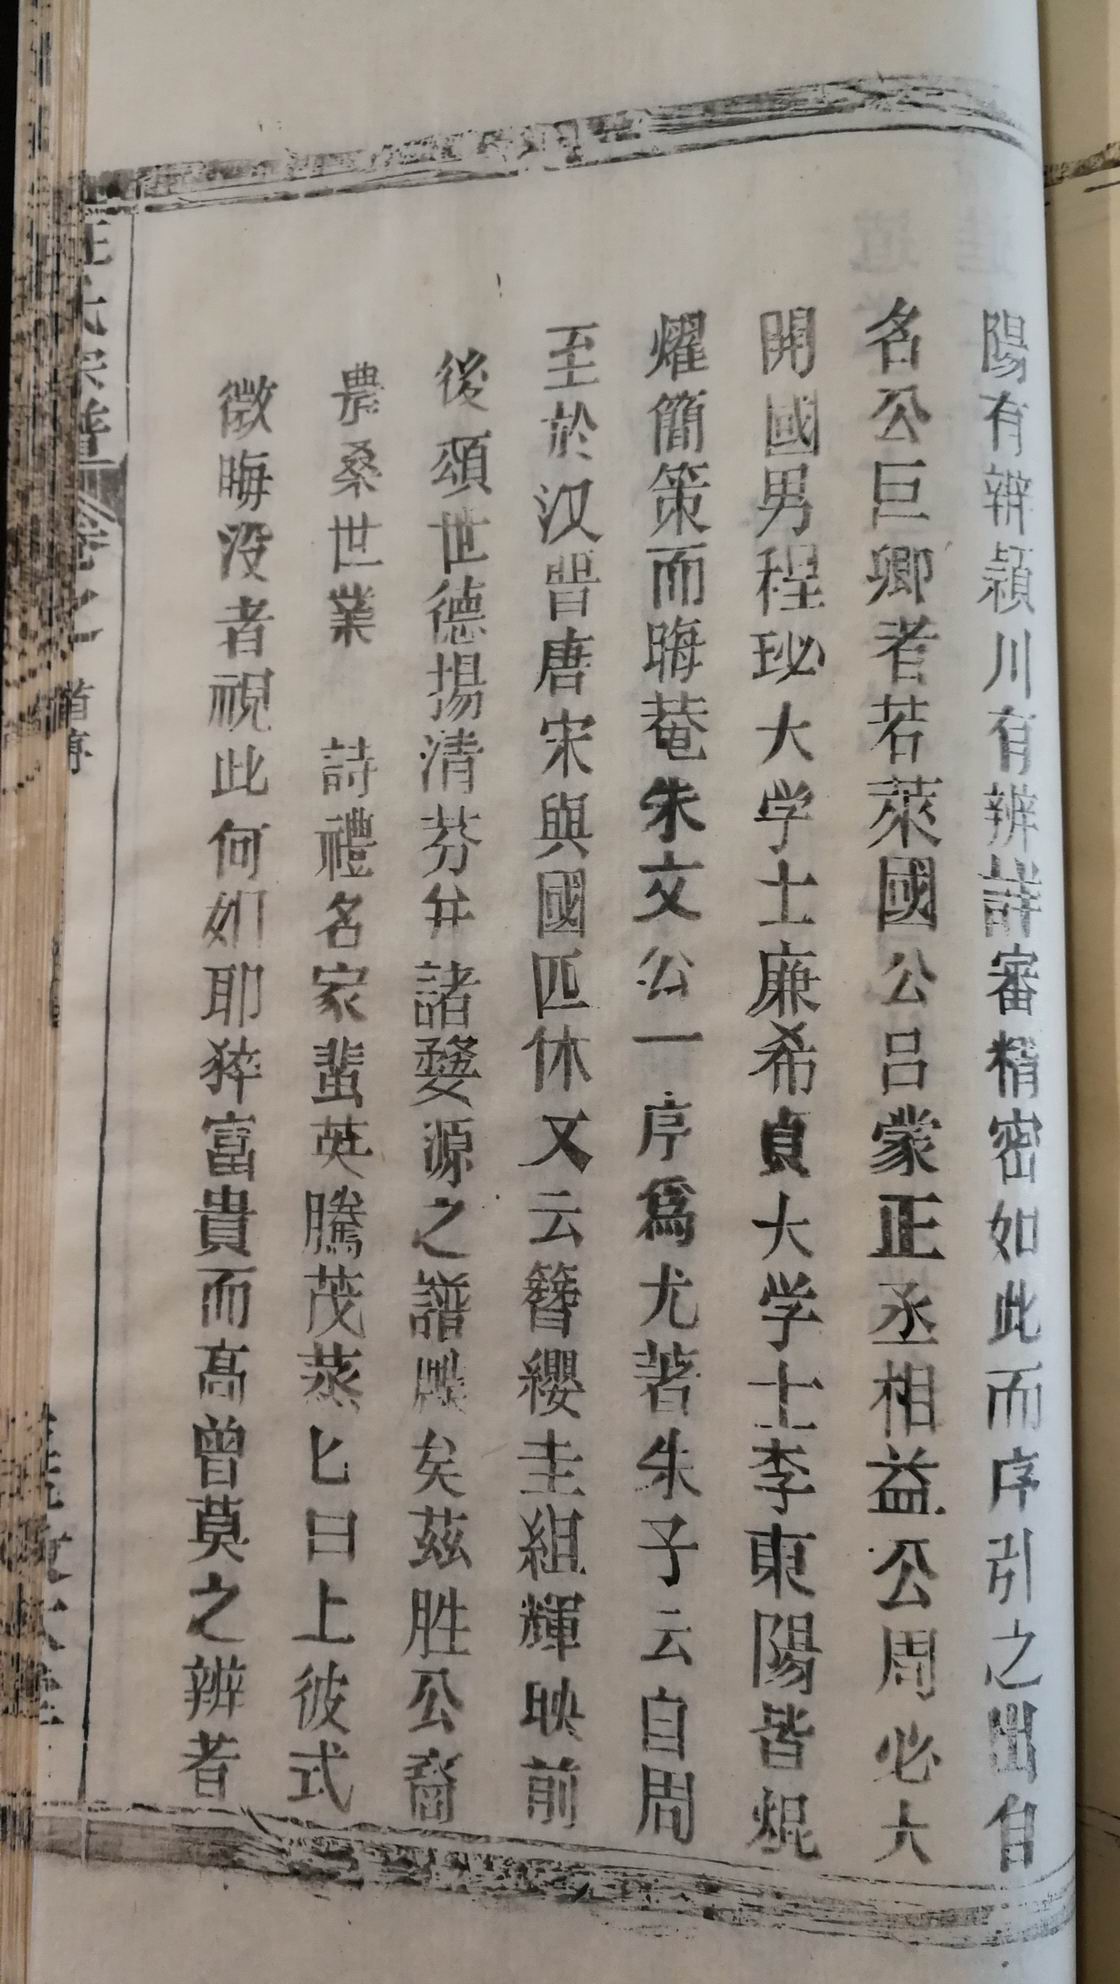 陽有辨潁川有辨詳審精密如此而序引之出自
名公巨卿者若萊國公呂蒙正丞相益公周必大
開國男程珌大学士廉希貞大学士李東陽皆焜
燿簡策而晦菴朱文公一序爲尤著朱子云自周
至於汉晉唐宋與國匹休又云簪纓圭組輝映前
後頌世德揚清芬弁諸婺源之譜牒矣茲胜公裔
農桑世業　詩禮名家蜚英騰茂蒸匕曰上彼式
微晦没者視此何如耶猝富貴而高曾莫之辨者
汪氏宗譜 卷之 首序